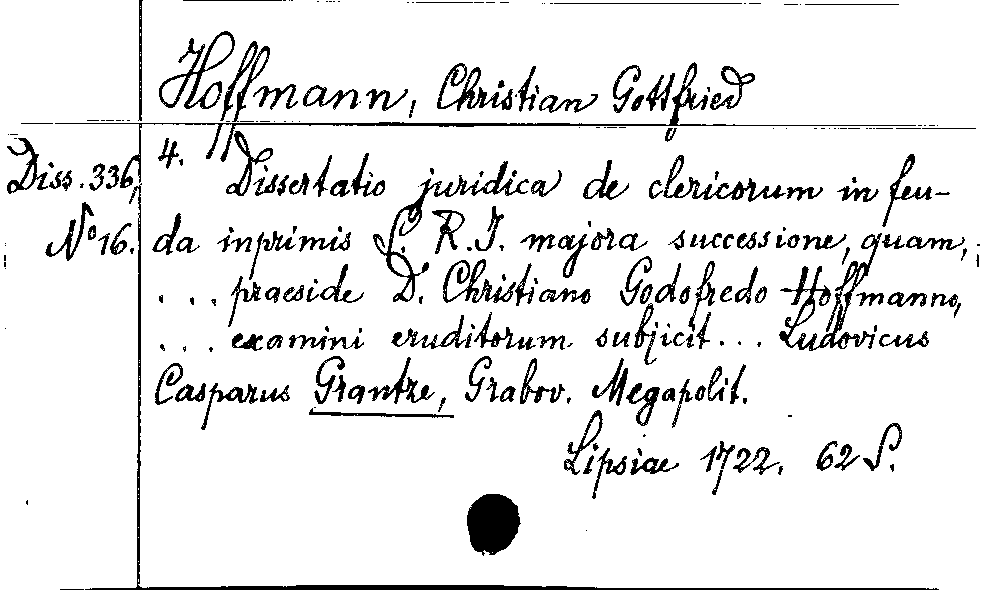 Hoffmann, Christian Gottfried
Diss. 336,
No 16.
4. Dissertatio juridica de clericorum in feu-
da inprimis S. R. I. majora successione, quam,
... praeside D. Christiano Godofredo Hoffmanno,
... examini eruditorum subjicit ... Ludovicus
Casparus Grantze, Grabov. Megapolit.
Lipsiae 1722. 62 S.